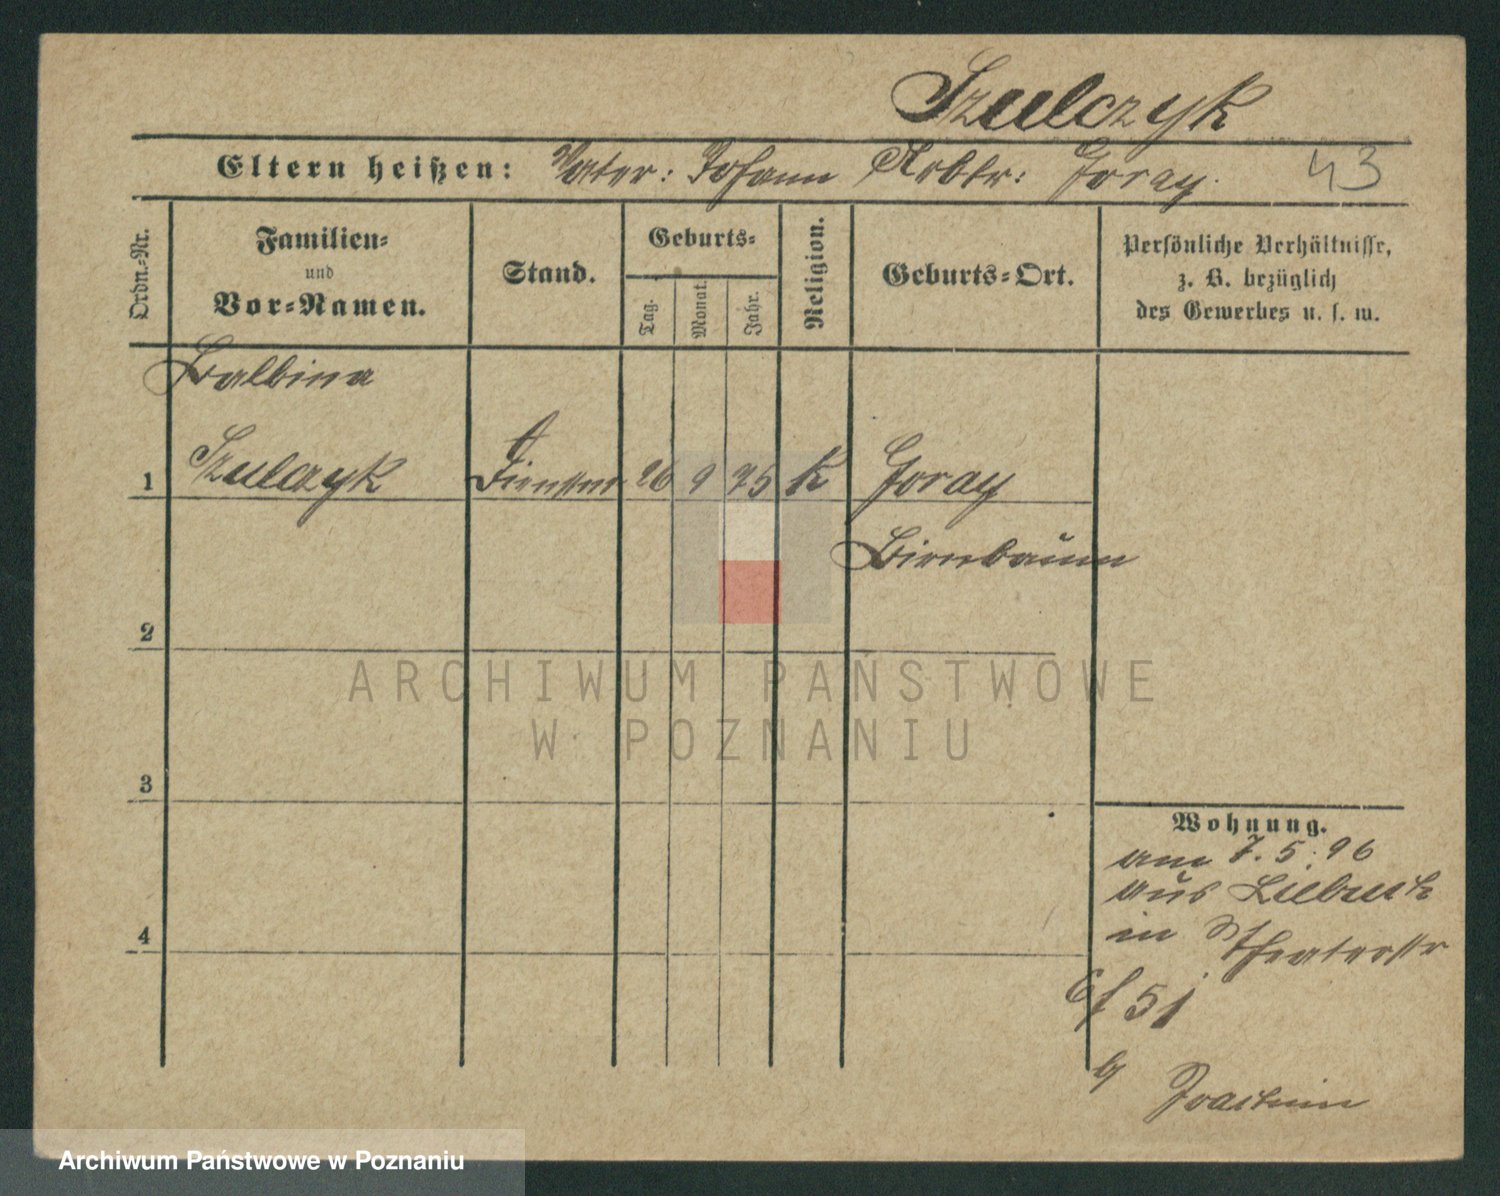 Szulczyk
Eltern heißen: Vater: Johann Arbtr: Goray.
43
Ordn.-Nr.
Familien-
und
Vor-Namen.
Stand.
Geburts-
Tag.
Monat.
Jahr.
Religion.
Geburts-Ort.
Persönliche Verhältnisse,
z. B. bezüglich
des Gewerbes u. s. w.
Balbina
1 Szulczyk 26 9 75 K Goray
Birnbaum
2
3
4
Wohnung.
am 7. 5. 96
aus
in Theaterstr
51
b
Joachim
ARCHIWUM PAŃSTWOWE
W POZNANIU
Archiwum Państwowe w Poznaniu